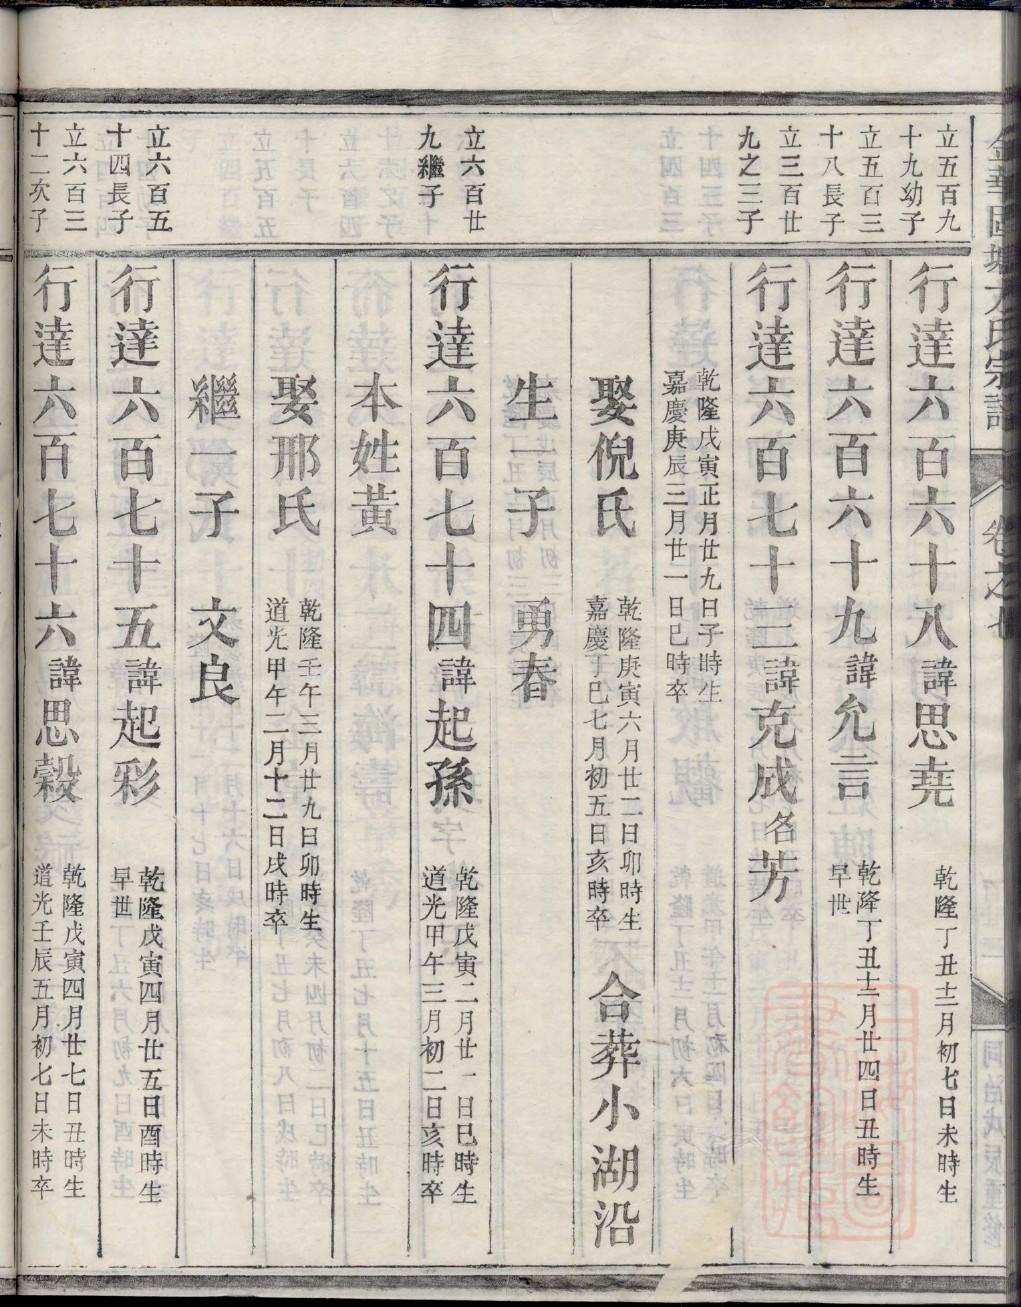 立五百九
十九幼子
行達六百六十八諱思堯
乾隆丁丑十二月初七日未時生
立五百三
十八長子
行達六百六十九諱允言
乾隆丁丑十二月廿四日丑時生
早世
立三百廿
九之三子
行達六百七十二諱克成名芳
乾隆戊寅正月廿九日子時生
嘉慶庚辰三月廿一日巳時卒
娶倪氏
乾隆庚寅六月廿二日卯時生
嘉慶丁巳七月初五日亥時卒
合葬小湖沿
生一子 勇春
立六百廿
九繼子
行達六百七十四諱起孫
乾隆戊寅二月廿一日巳時生
道光甲午三月初二日亥時卒
本姓黃
娶邢氏
乾隆壬午三月廿九日卯時生
道光甲午二月十二日戌時卒
繼一子 文良
立六百五
十四長子
行達六百七十五諱起彩
乾隆戊寅四月廿五日酉時生
早世
立六百三
十二次子
行達六百七十六諱思穀
乾隆戊寅四月廿七日丑時生
道光壬辰五月初七日未時卒